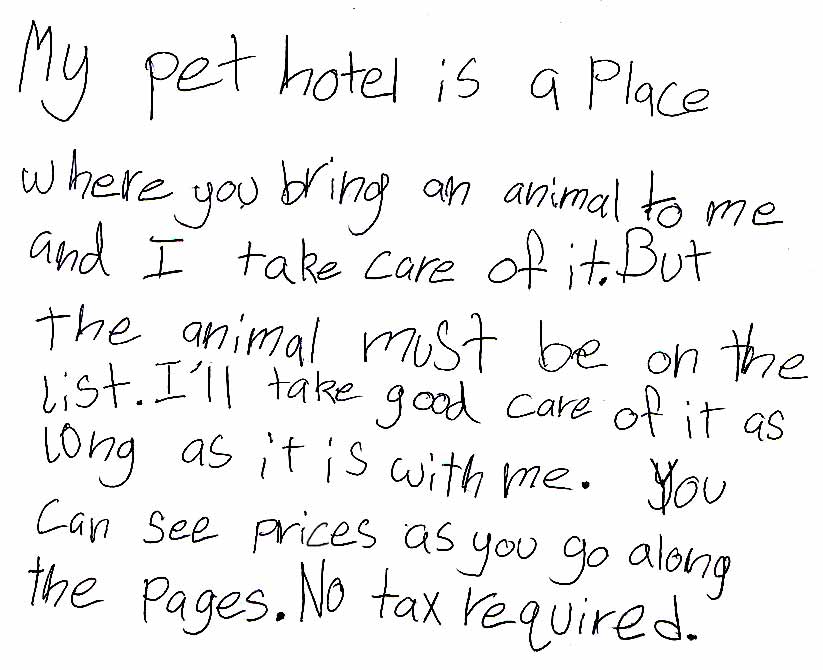 My pet hotel is a Place
where you bring an animal to me
and I take care of it. But
the animal must be on the
list. I'll take good care of it as
long as it is with me. You
Can see prices as you go along
the pages. No tax required.